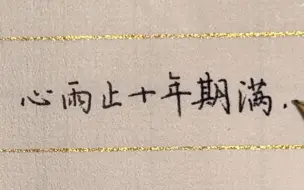 心雨止十年期满.